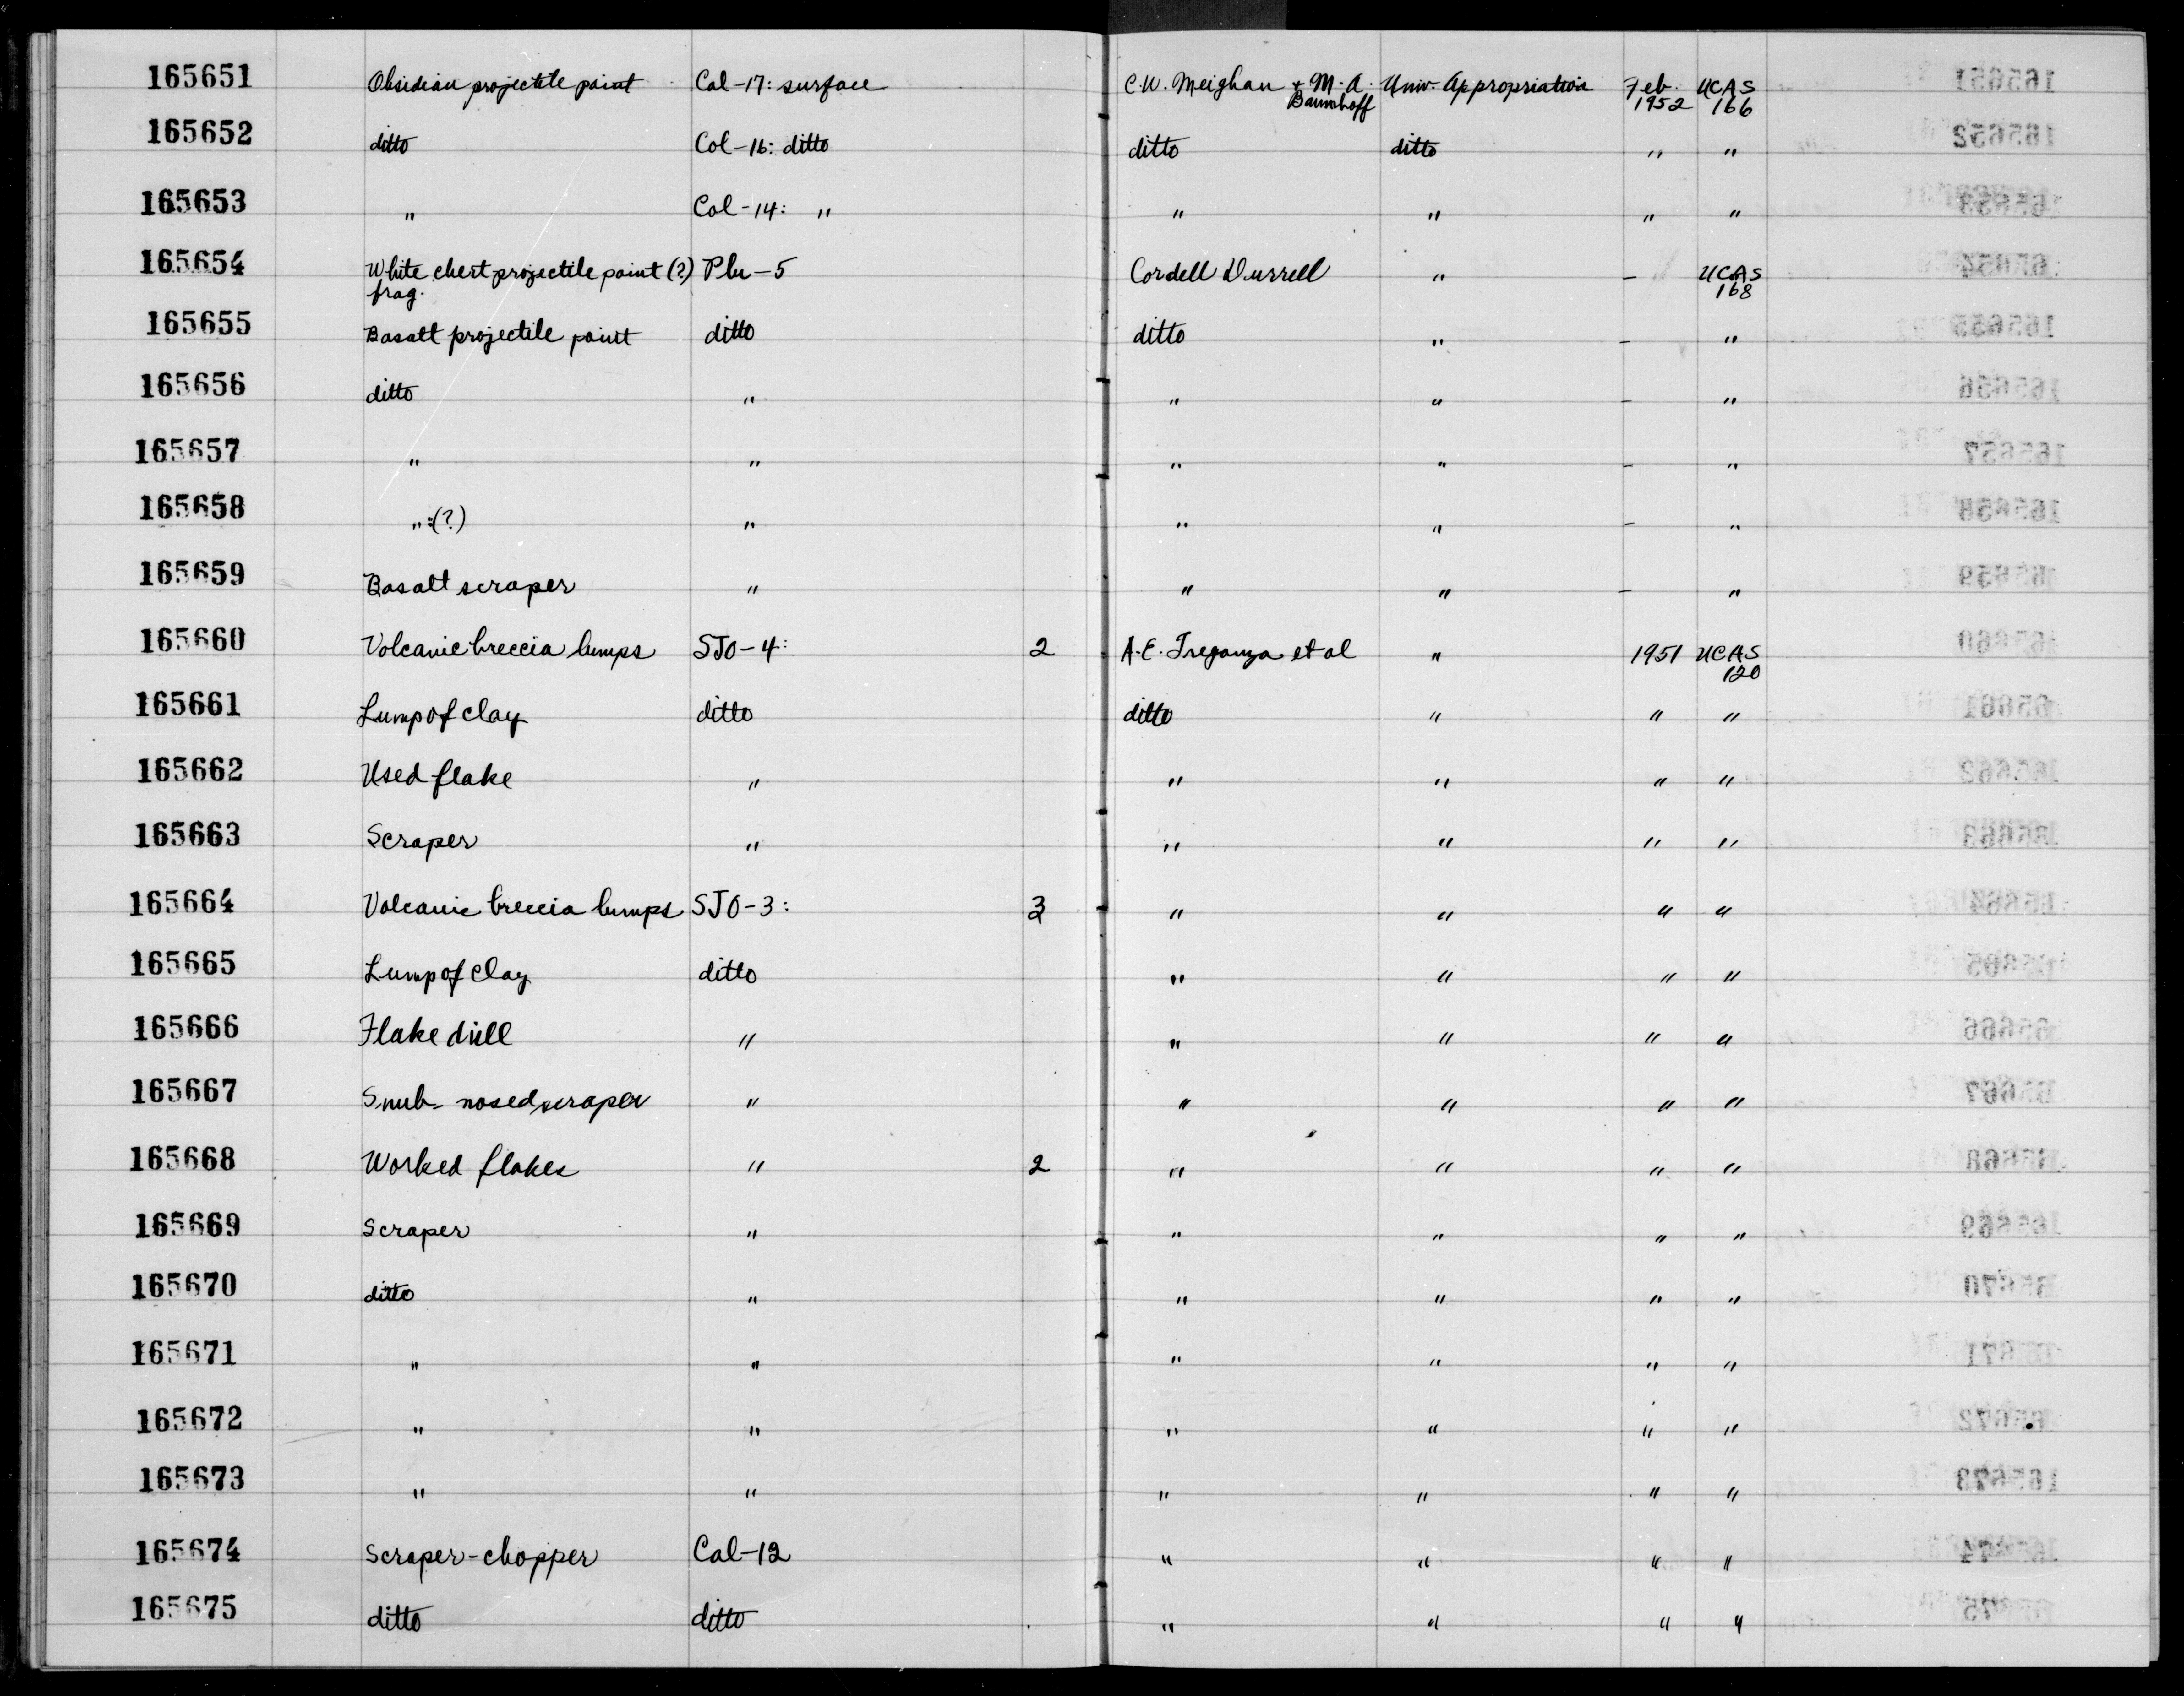 165651 Obsidian projectile point Cal-17: surface C.W. Meighan + M.A. Baumhoff Univ. Appropriation Feb. 1952 UCAS 166
165652 ditto Col-16: ditto ditto ditto " "
165653 " Col-14: " " " " "
165654 White chert projectile point (?) frag. Plu-5 Cordell Durrell " - UCAS 168
165655 Basalt projectile point ditto ditto " - "
165656 ditto " " " - "
165657 " " " " - "
165658 " :(?) " " " - "
165659 Basalt scraper " " " - "
165660 Volcanic breccia lumps SJO-4: 2 A.E. Treganza et al " 1951 UCAS 120
165661 Lump of clay ditto ditto " " "
165662 Used flake " " " " "
165663 Scraper " " " " "
165664 Volcanic breccia lumps SJO-3: " " " "
165665 Lump of clay ditto " " " "
165666 Flake drill " " " " "
165667 Snub-nosed scraper " " " " "
165668 Worked flakes " 2 " " " "
165669 Scraper " " " " "
165670 ditto " " " " "
165671 " " " " " "
165672 " " " " " "
165673 " " " " " "
165674 Scraper-chopper Cal-12 " " " "
165675 ditto ditto " " " "